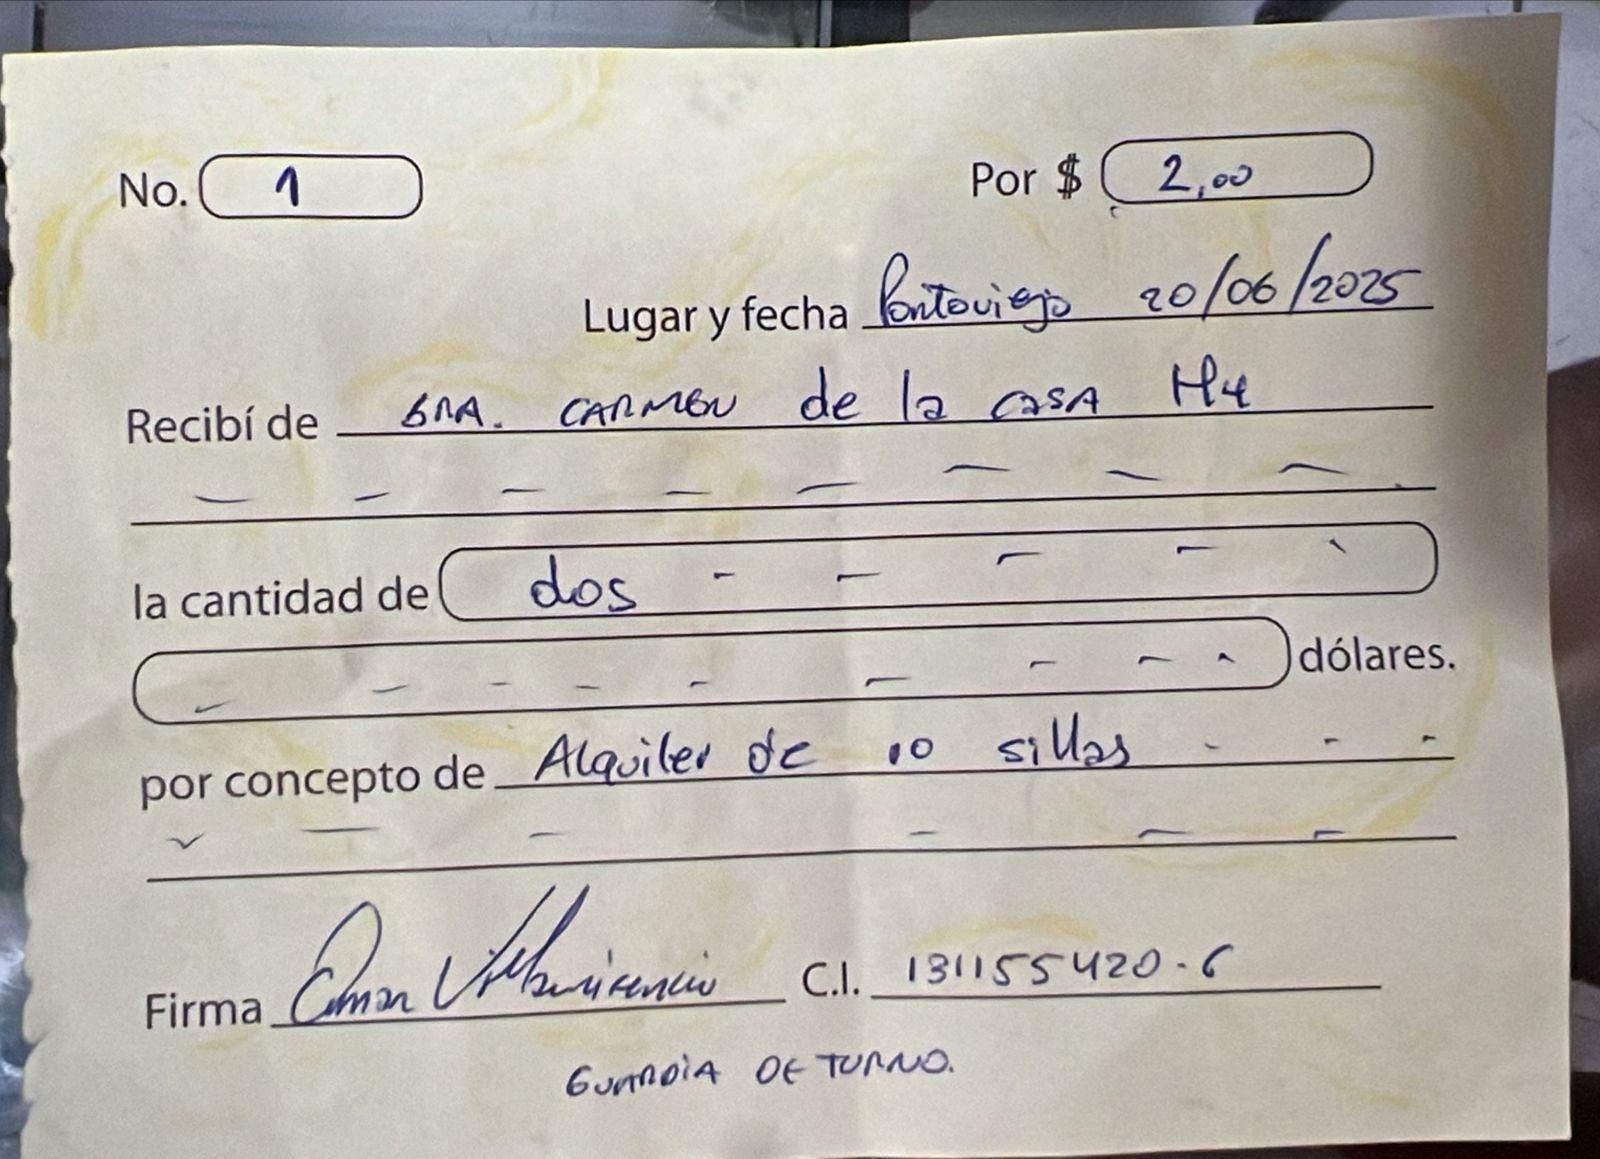 No. 1 Por $ 2,00
Lugar y fecha Portoviejo 20/06/2025
Recibí de SRA. CARMEN de la CASA H4
la cantidad de dos
dólares.
por concepto de Alquiler de 10 sillas
Firma Omar Villavicencio C.I. 131155420-6
GUARDIA DE TURNO.